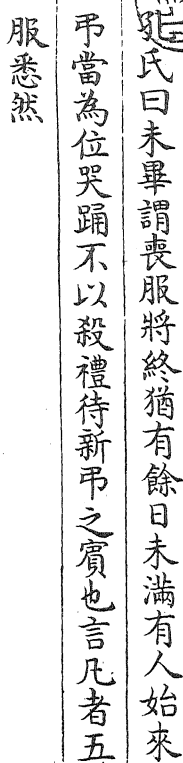 孔氏曰未畢謂喪服將終猶有餘日未滿有人始來
弔當為位哭踊不以殺禮待新弔之賓也言凡者五
服悉然